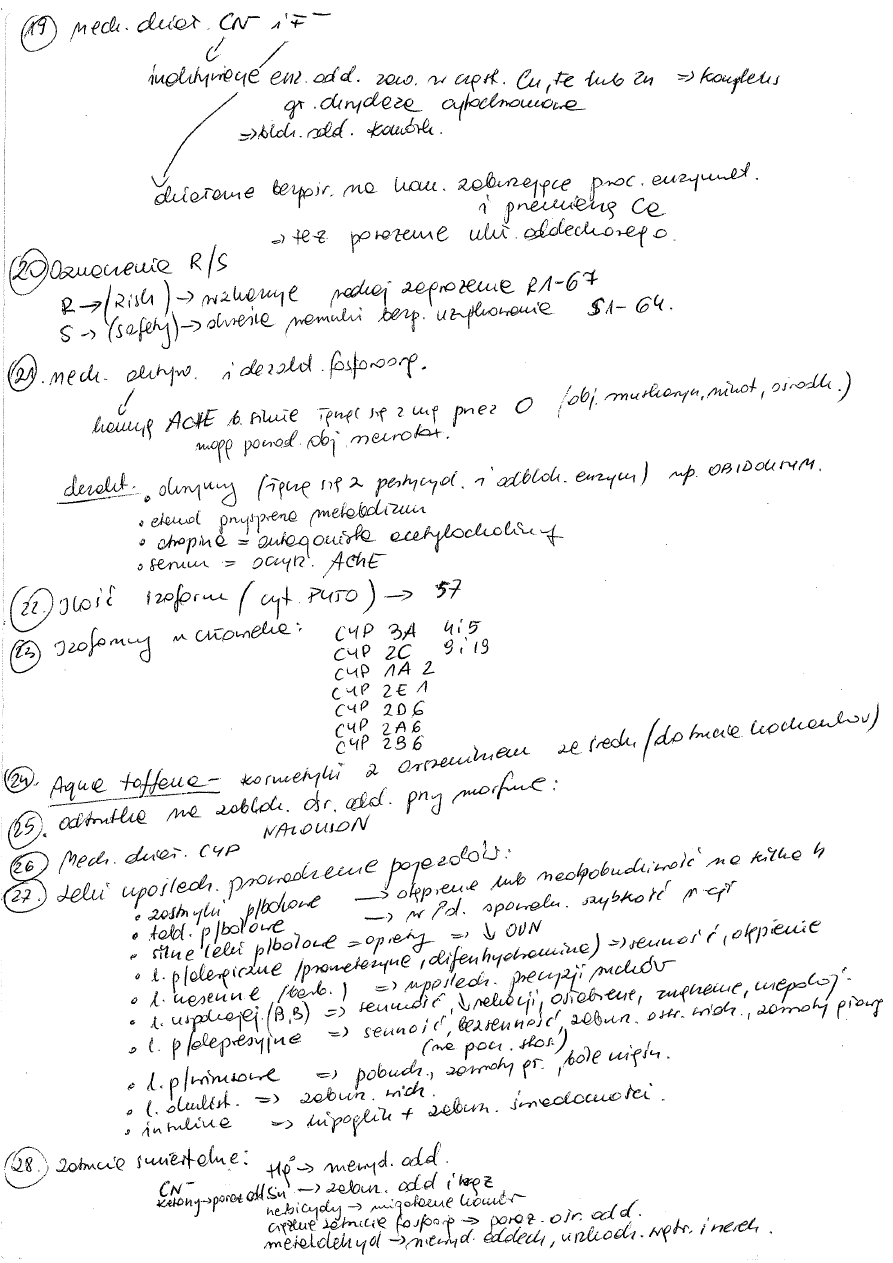 19 Mech. dział. CN⁻ i F⁻
inaktywacje enz. odd. zaw. w cząst. Cu, Fe lub Zn => kompleks
gr. oksydaza cytochromowa
=> blok. odd. komórk.
działanie bezpośr. na kom. zaburzające proc. enzymat.
i przemianę Ca
=> też porażenie ukł. oddechowego.
20 Oznaczenia R/S
R -> (Risk) -> wskazuje rodzaj zagrożenia R1-67
S -> (safety) -> określa warunki bezp. użytkowania S1-64.
21. Mech. aktyw. i dezakt. fosforoorg.
hamują AChE b. silnie łącząc się z nią przez O (obj. muskaryn, nikot, ośrodk.)
mogą powod. obj. neurotox.
dezakt. • oksymy (łączą się z pestycyd. i odblok. enzym) np. OBIDOKSYM.
• etanol przyspiesza metabolizm
• atropina = antagonista acetylocholiny
• serum = oczyszcz. AChE
22. Ilość izoform (cyt. P450) -> 57
23 Izoformy u człowieka: CYP 3A 4 i 5
CYP 2C 9 i 19
CYP 1A 2
CYP 2E 1
CYP 2D6
CYP 2A6
CYP 2B6
24. Aqua toffana - kosmetyki z arszenikiem ze średn. (do trucia kochanków)
25. odtrutka na zablok. ośr. odd. przy morfinie:
NALOKSON
26 Mech. dział. CYP
27. Leki upośledz. prowadzenie pojazdów:
• zastrzyki p/bólowe -> otępienie lub nadpobudliwość na kilka h
• tabl. p/bólowe -> w Pd. spowoln. szybkość r-cji
• silne leki p/bólowe = opiaty => ↓ OUN
• l. p/alergiczne (prometazyna, difenhydramina) => senność, otępienie
• l. nasenne (barb.) => upośledz. precyzji ruchów
• l. uspokaj. (B,B) => senność, ↓ reakcji, osłabienie, zmęczenie, niepokój.
• l. p/depresyjne => senność, bezsenność, zabun. ostr. widz., zawroty głowy
(na pocz. stos.)
• l. p/wirusowe => pobudz., zawroty gł., bóle mięśn.
• l. okulist. => zabun. widz.
• insulina => hipoglik + zabun. świadomości.
28. Zatrucie śmiertelne: Hg° -> niewyd. odd.
CN⁻ -> zabun. odd i krąż
ketony -> poraż OUN
herbicydy -> migotanie komór
ciężkie zatrucie fosforg -> poraż. ośr. odd.
metaldehyd -> niewyd. oddech, uszkodz. wątr. i nerek.